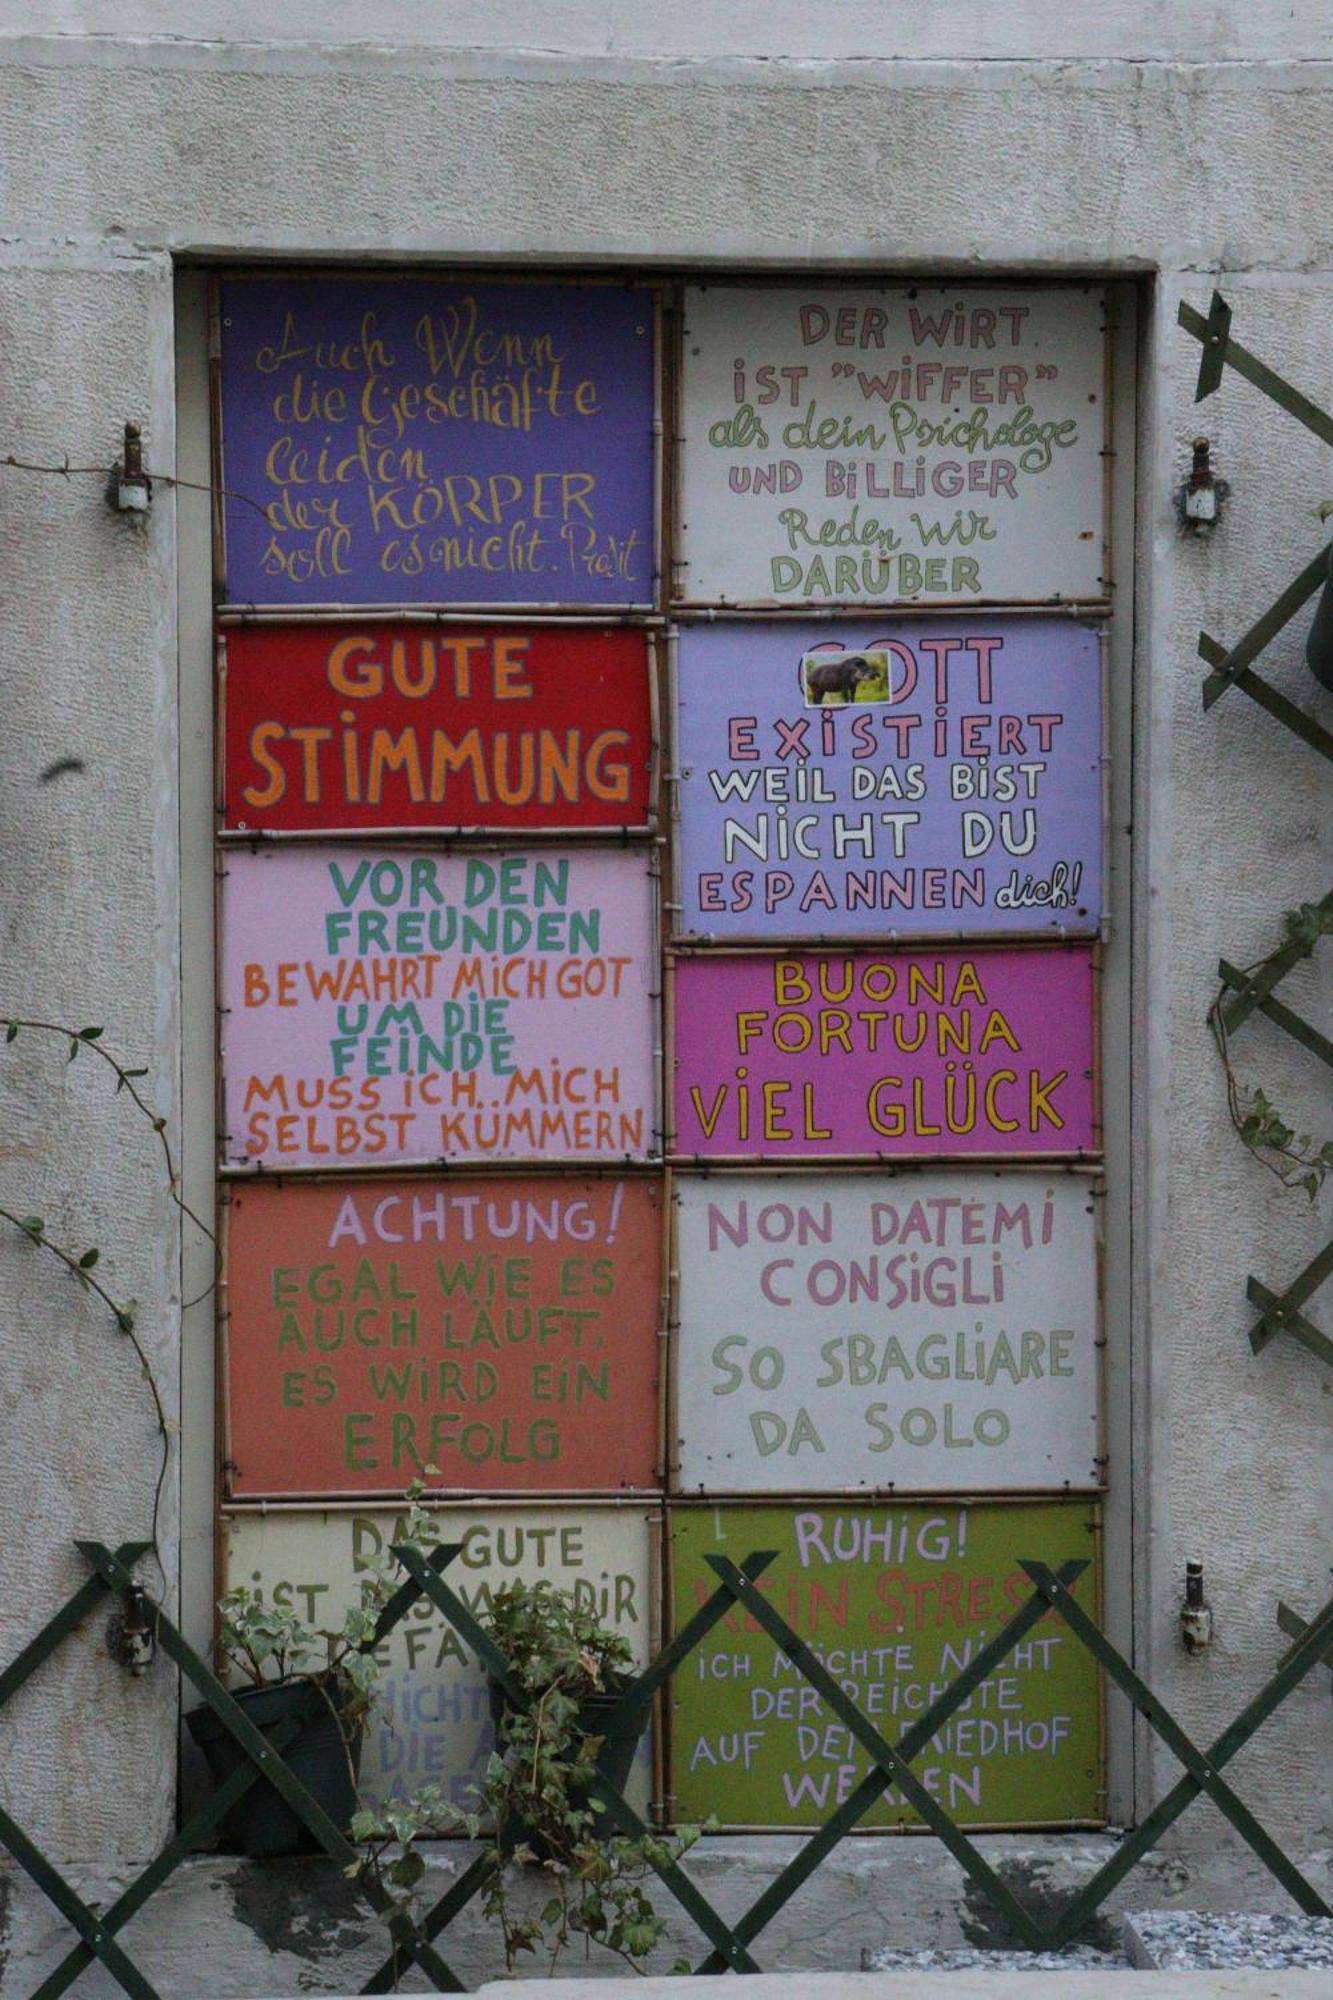 Auch Wenn
die Geschäfte
leiden
der KÖRPER
soll es nicht. Prosit
GUTE
STIMMUNG
VOR DEN
FREUNDEN
BEWAHRT MICH GOT
UM DIE
FEINDE
MUSS ICH MICH
SELBST KÜMMERN
ACHTUNG!
EGAL WIE ES
AUCH LÄUFT,
ES WIRD EIN
ERFOLG
DAS GUTE
IST DAS WAS DIR
DIE
DER WIRT
IST "WIFFER"
als dein Psichologe
UND BILLIGER
Reden wir
DARÜBER
GOTT
EXISTIERT
WEIL DAS BIST
NICHT DU
ESPANNEN dich!
BUONA
FORTUNA
VIEL GLÜCK
NON DATEMI
CONSIGLI
SO SBAGLIARE
DA SOLO
RUHIG!
KEIN STRESS
ICH MÖCHTE NICHT
DER REICHSTE
AUF DEM FRIEDHOF
WERDEN